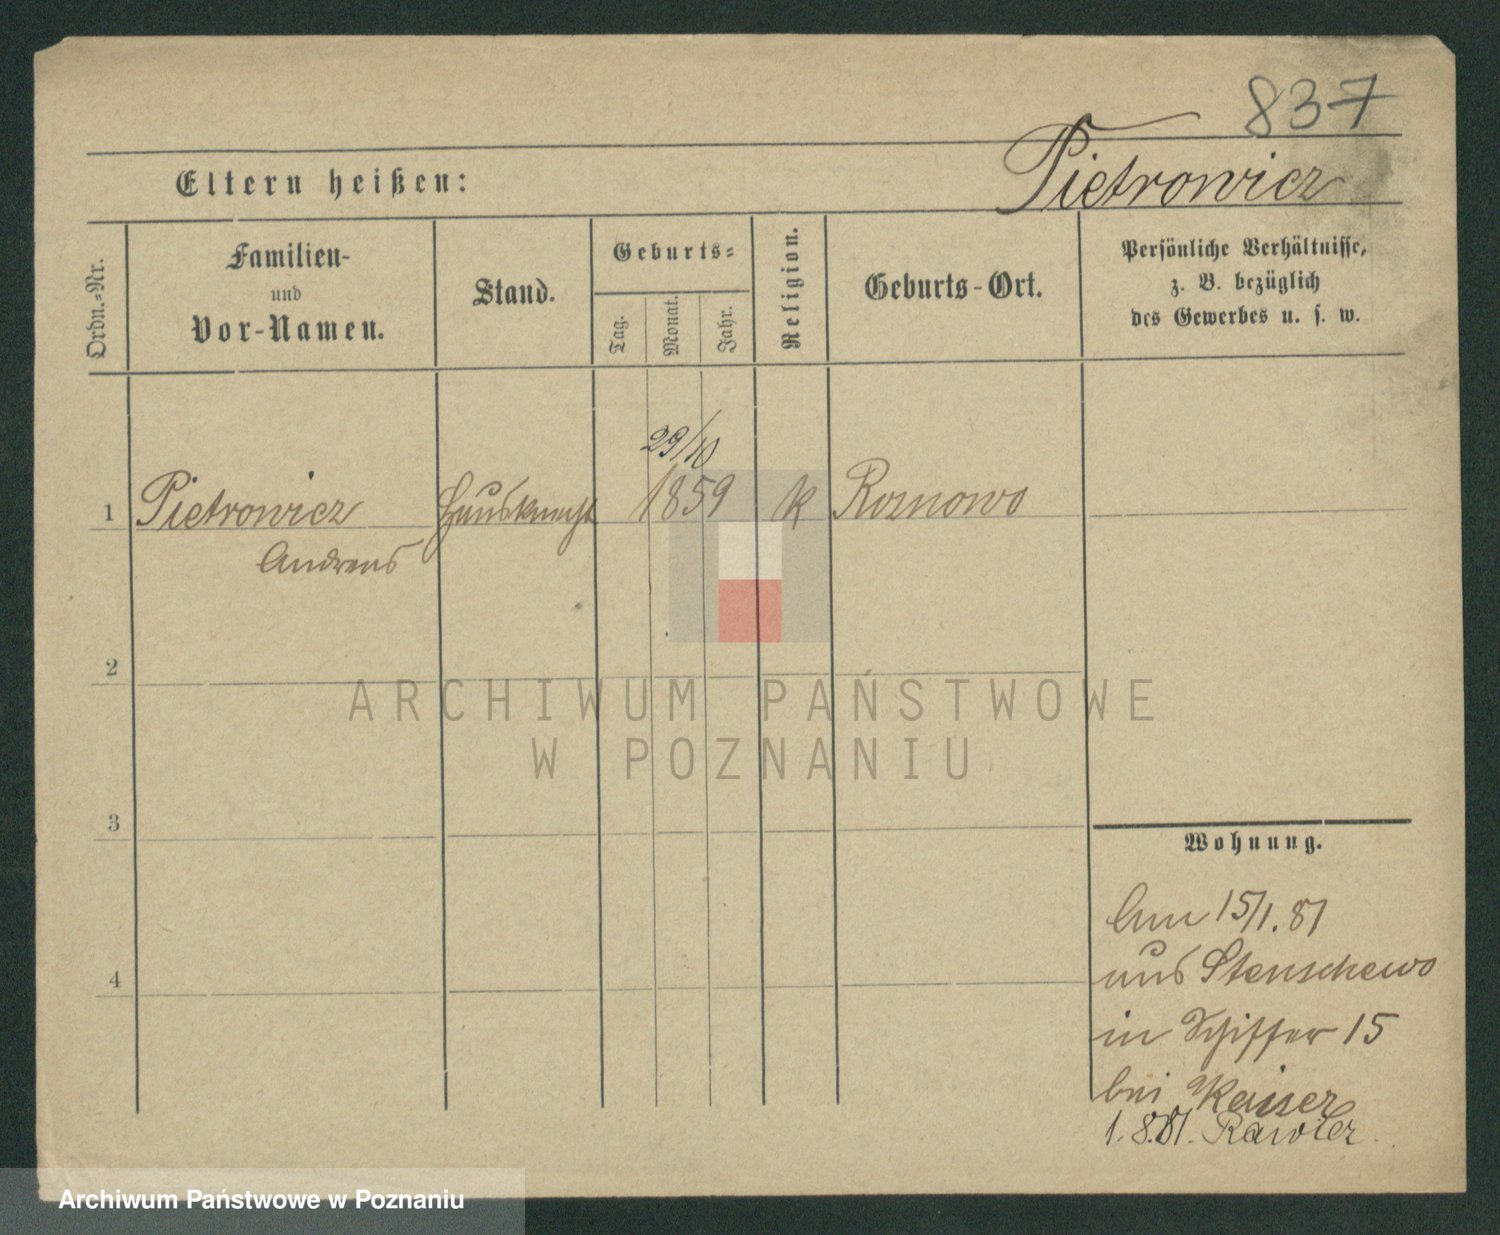 837
Pietrowicz
Eltern heißen:
Ordn.-Nr.
Familien-
und
Vor-Namen.
Stand.
Geburts-
Tag.
Monat.
Jahr.
Religion.
Geburts-Ort.
Persönliche Verhältnisse,
z. B. bezüglich
des Gewerbes u. s. w.
29/10
1 Pietrowicz Hausknecht 1859 k Roznowo
Andreas
2
ARCHIWUM PAŃSTWOWE
W POZNANIU
3
4
Wohnung.
Am 15/1.81
aus Stenschewo
in Schiffer 15
bei Kaiser
1.8.81. Rawicz
Archiwum Państwowe w Poznaniu